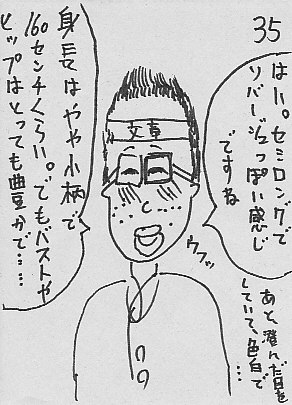 35
はい。セミロングで
ソバージュっぽい感じ
ですね
あと、澄んだ目を
していて、色白で
…
文章
ウフッ
身長はやや小柄で
160センチくらい。でもバストや
ヒップはとっても豊かで……